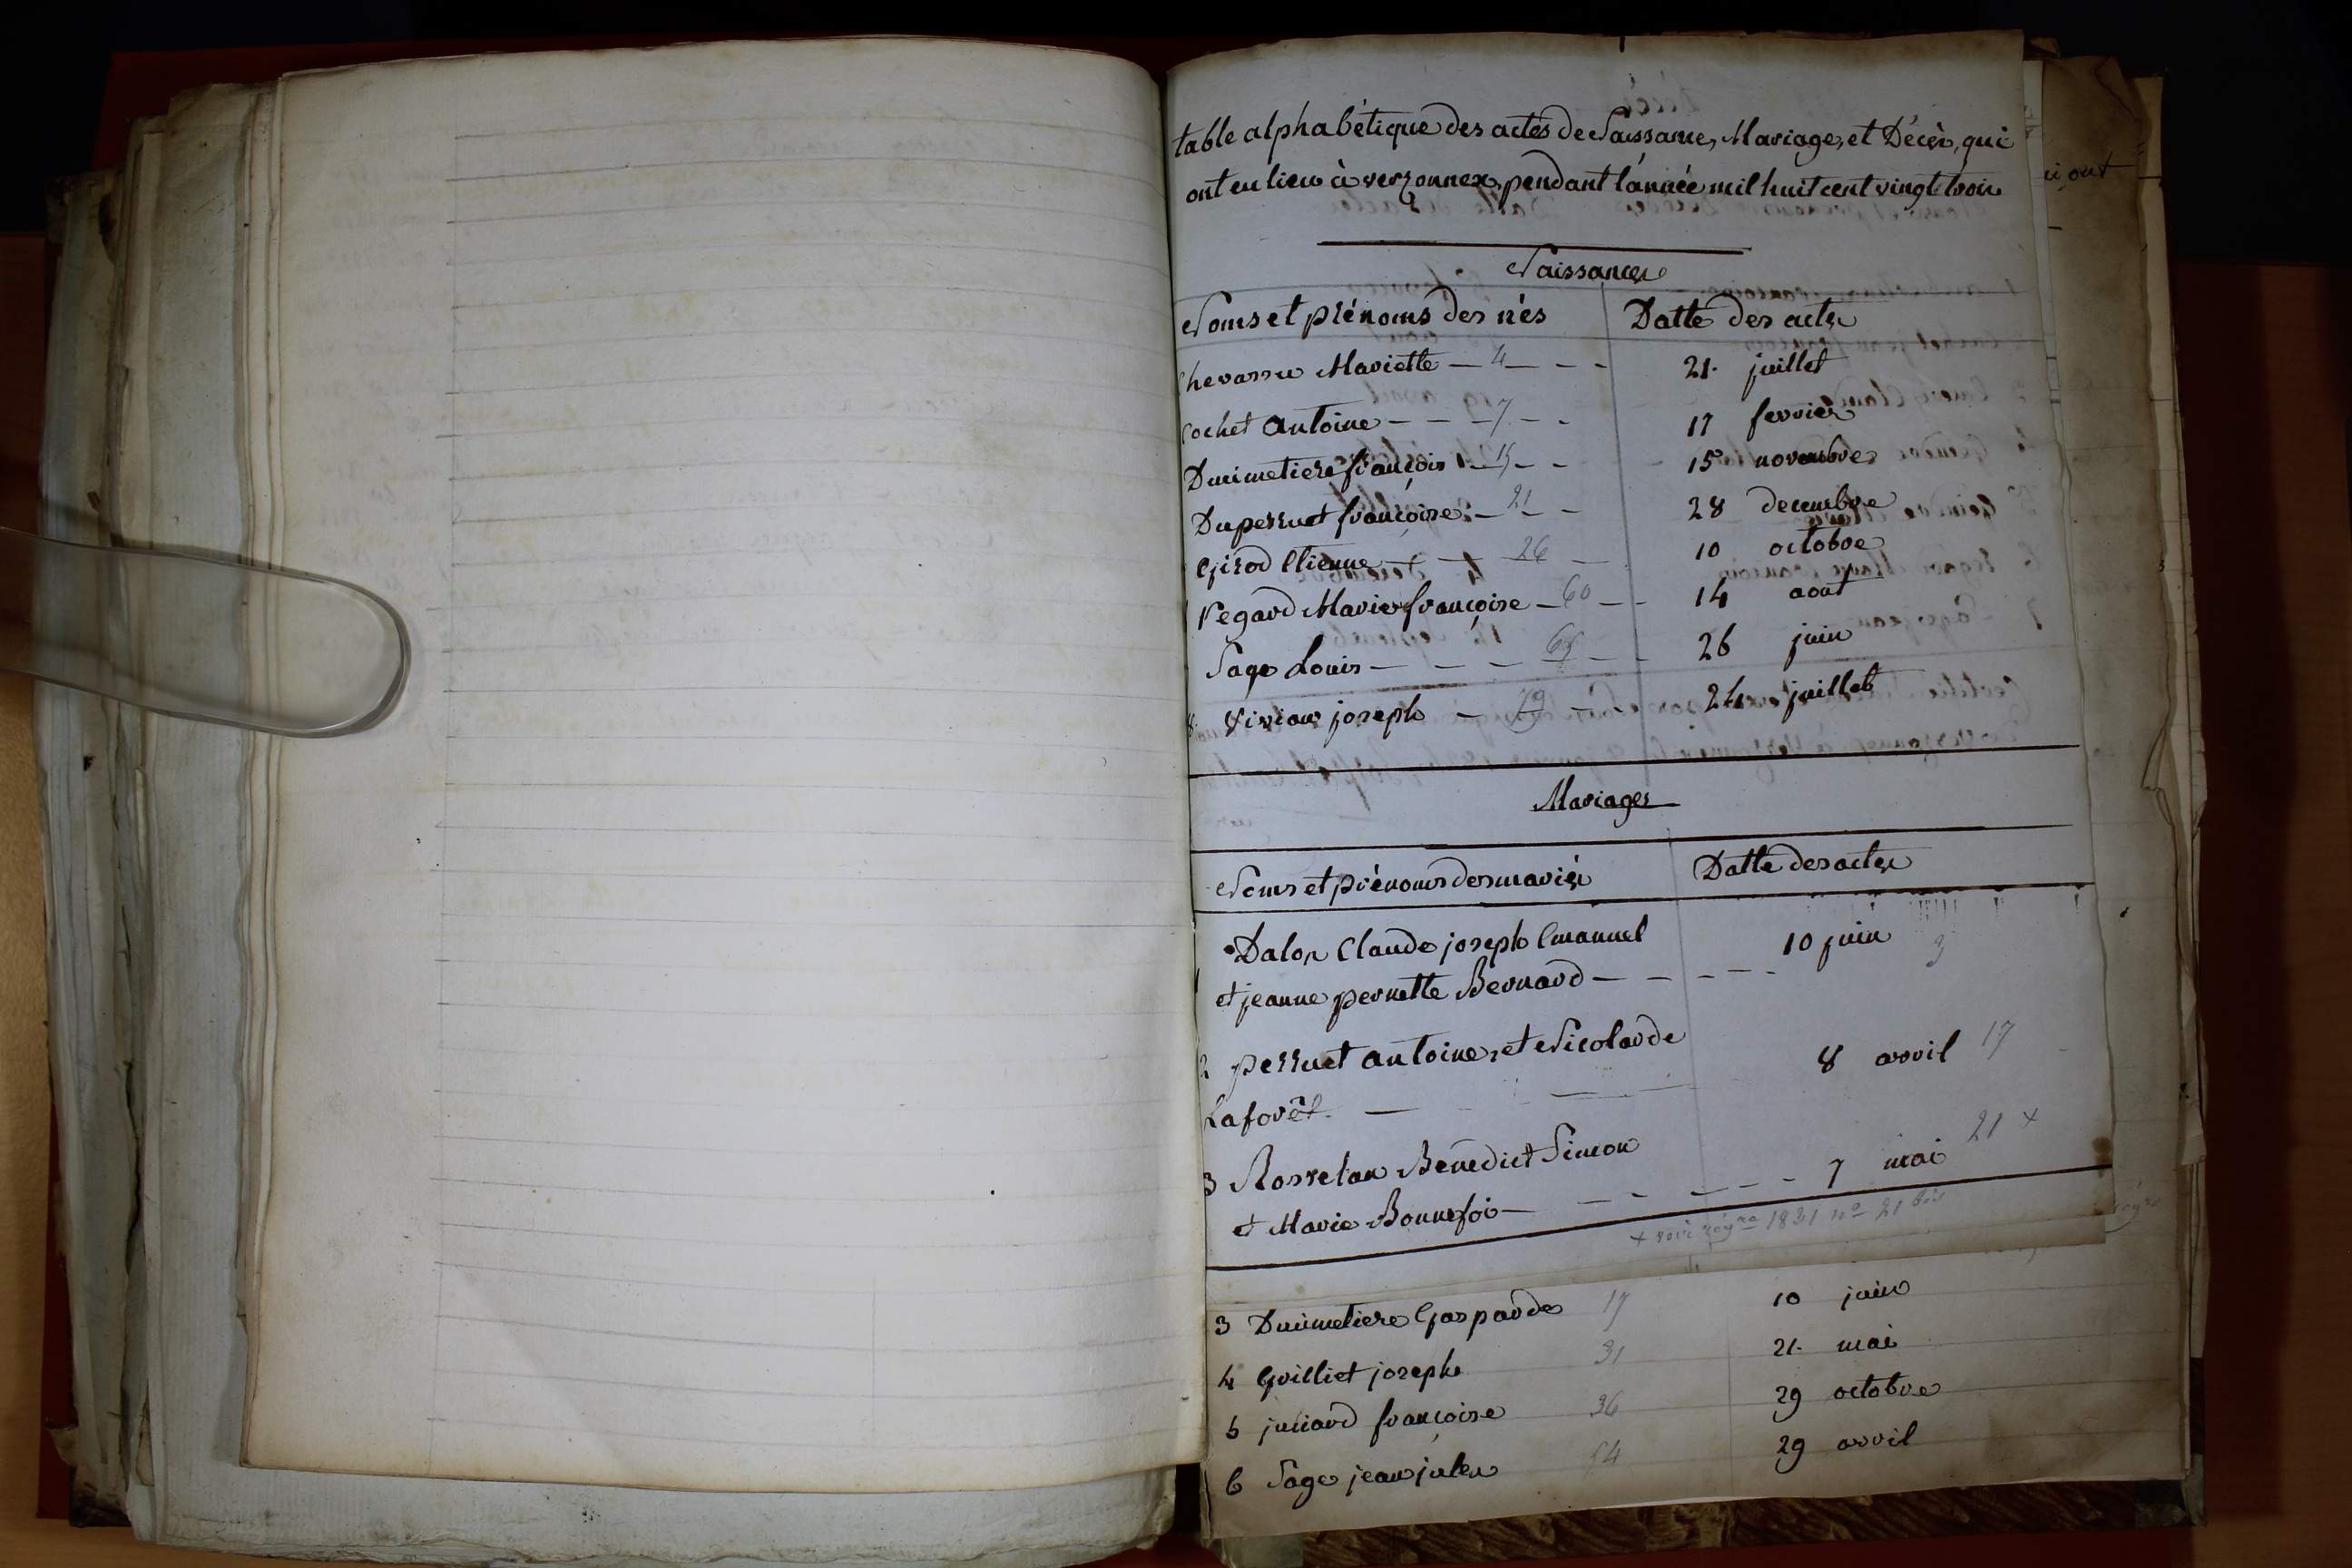 table alphabétique des actes de Naissance, Mariage, et Décès, qui
ont eu lieu à verzonnex, pendant l'année mil huit cent vingt trois
Naissances
Noms et prénoms des nés Datte des actes
Chevassu Mariette — 4 — - - 21. juillet
Cochet antoine - - - 7 - - 17 fevrier
Dumetiere françois - 15 - - 15 novembre
Duperruet françoise - 21 - - 28 decembre
Girod Etienne - - - 26 - 10 octobre
Regard Marie françoise - 60 - - 14 aout
Sage Louis - - - - 69 - - 26 juin
8. Vivian joseph - 79 - - 24 juillet
Mariages
Noms et prénoms des mariés Datte des actes
1 Dalon Claude joseph Emanuel 10 juin 9
et jeanne pernette Bernard - - - - -
2 perruet antoine, et Nicolarde 8 avril 17
Laforêt. —
3 Rosselan Bénédict Simon 7 mai 21 +
et Marie Bonnefoi - - - - - -
+ voir rég.re 1821 n° 21 bis
3 Dumetiere Gasparde 17 10 juin
4 Grilliet joseph 31 21. mai
5 juliard françoise 36 29 octobre
6 Sage jean jules 54 29 avril
ui ont